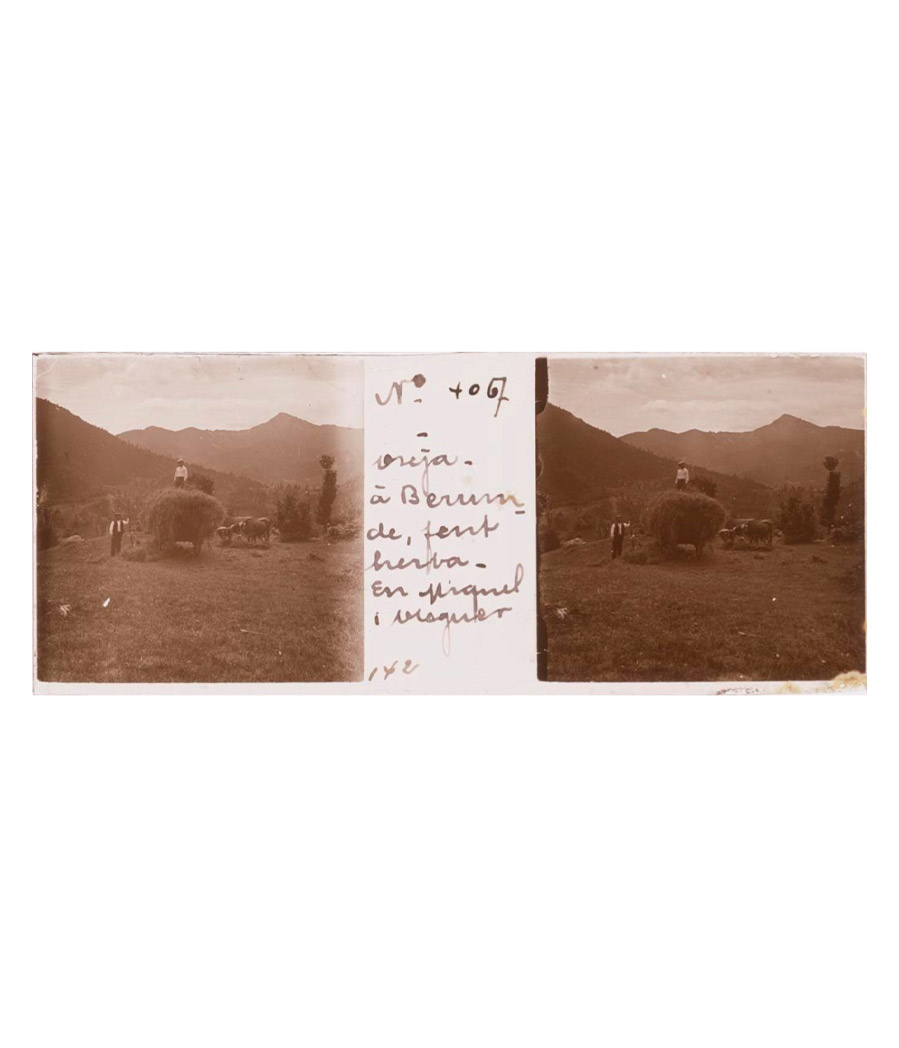 Nº 4067
oreja -
à Berum-
de, fent
herba -
En Miquel
i
142